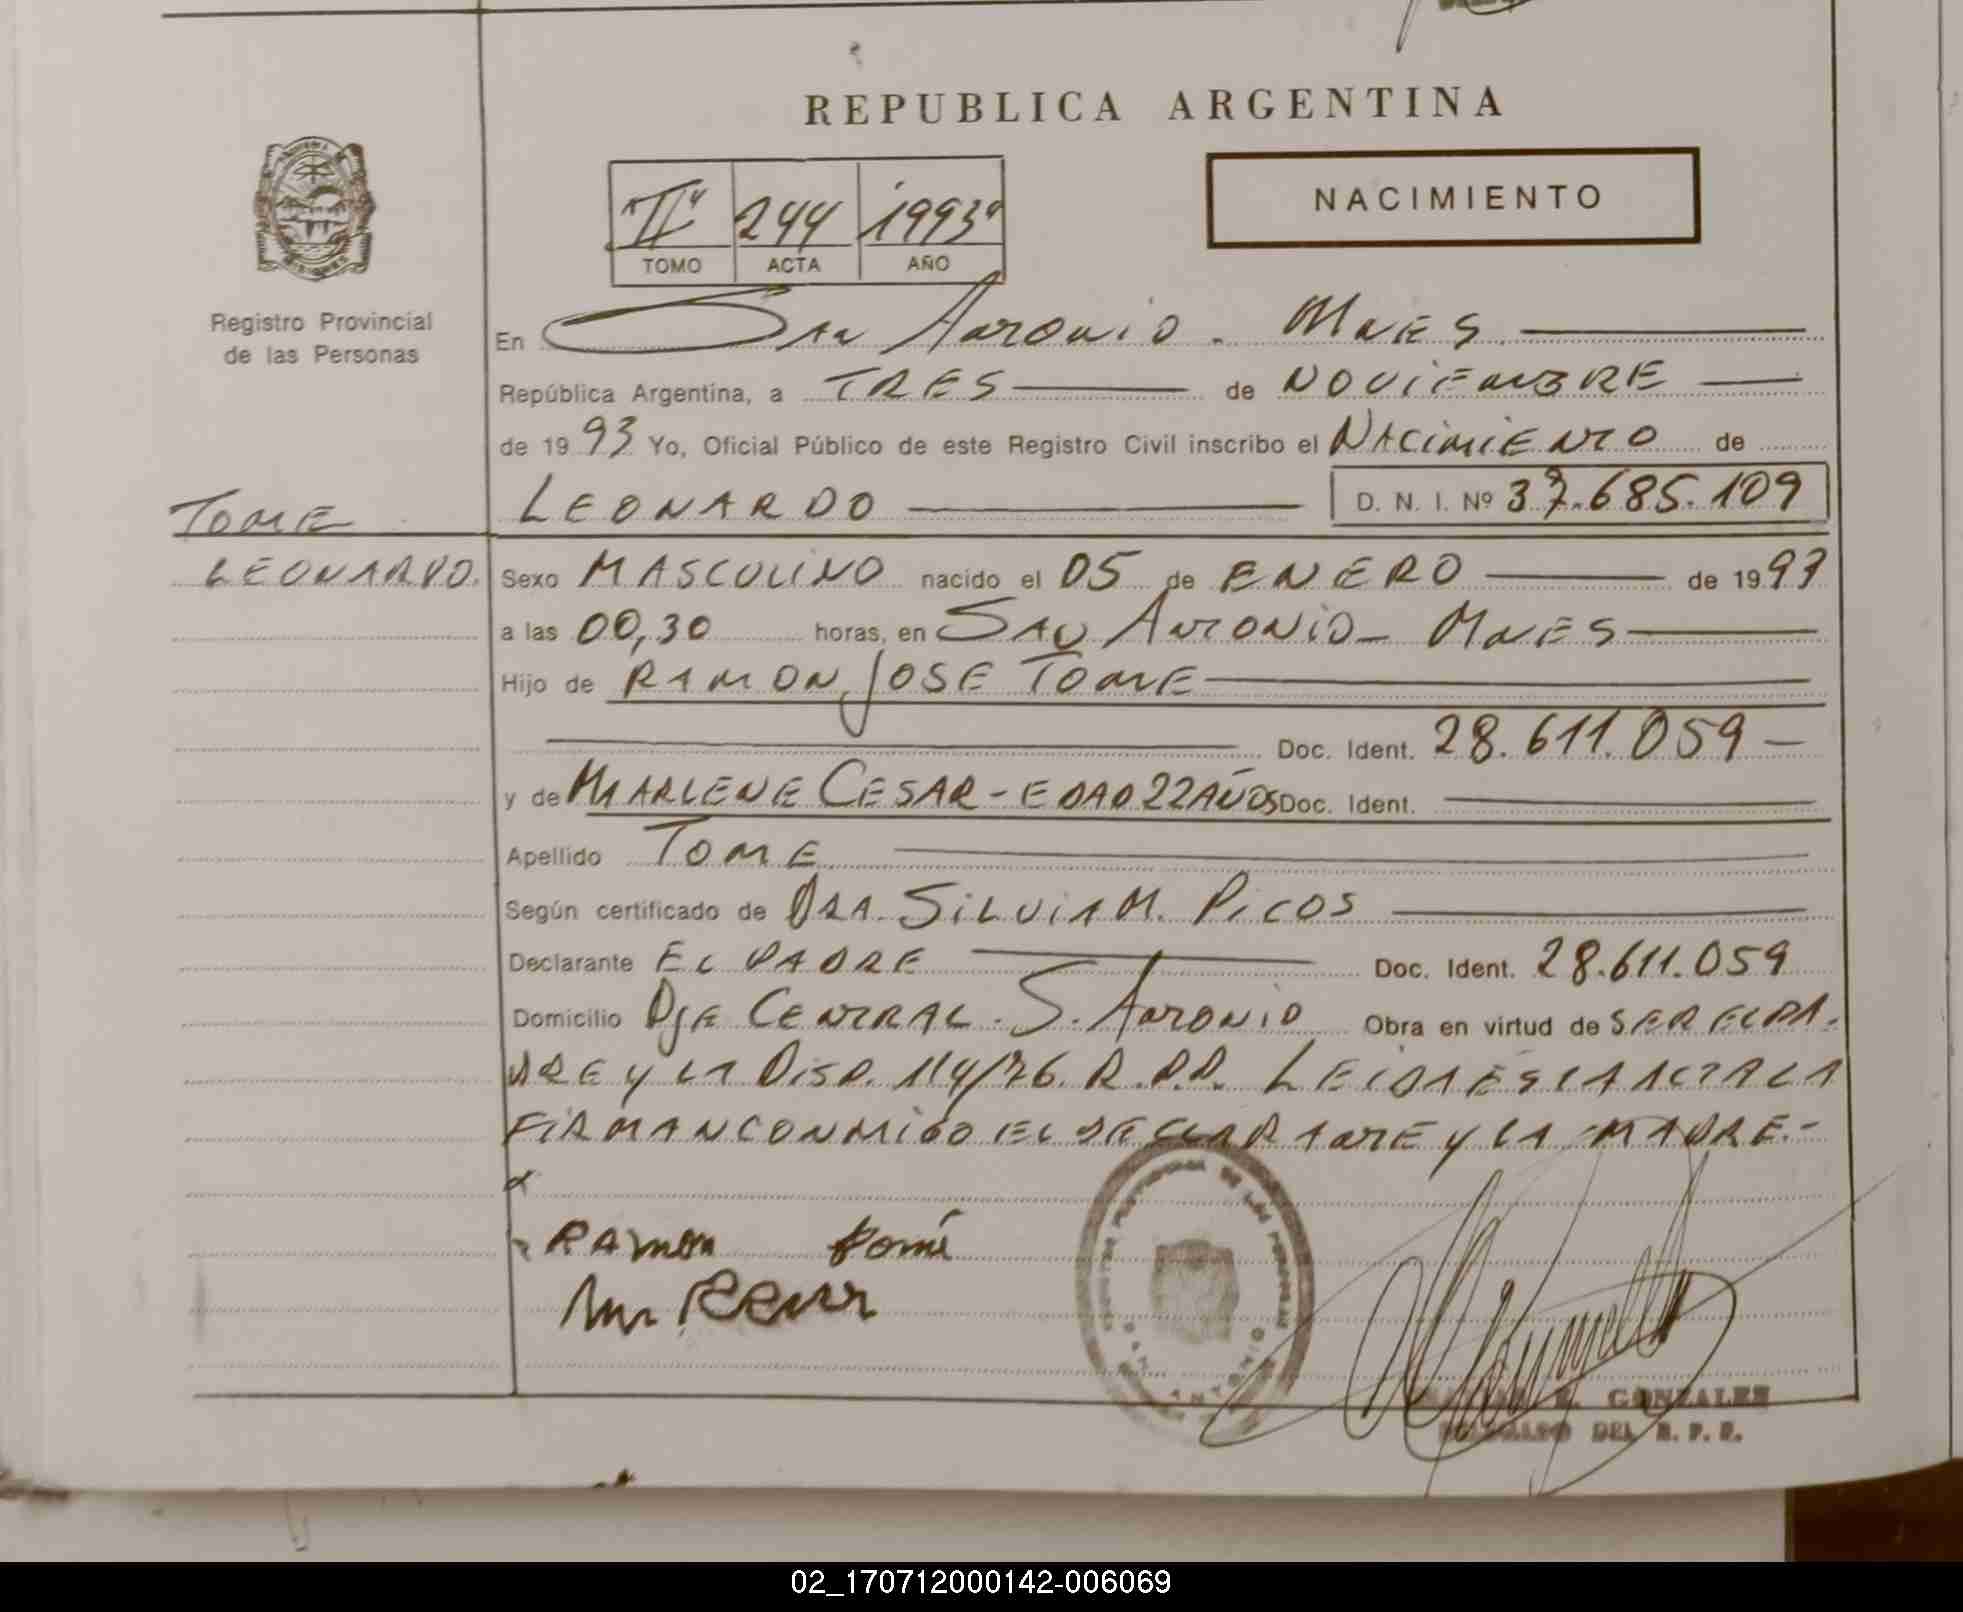 REPUBLICA ARGENTINA
NACIMIENTO
"II" 244 1993"
TOMO ACTA AÑO
Registro Provincial
de las Personas
En San Antonio - Mnes
República Argentina, a TRES de NOVIEMBRE
de 1993 Yo, Oficial Público de este Registro Civil inscribo el NACIMIENTO de
LEONARDO D. N. I. Nº 37.685.109
TOME
LEONARDO.
Sexo MASCULINO nacido el 05 de ENERO de 1993
a las 00,30 horas, en SAN ANTONIO - MNES
Hijo de RAMON JOSE TOME
Doc. Ident. 28.611.059 -
y de MARLENE CESAR - EDAD 22 AÑOS Doc. Ident.
Apellido TOME
Según certificado de DRA. SILVIA M. PICOS
Declarante EL PADRE Doc. Ident. 28.611.059
Domicilio Dje CENTRAL - S. ANTONIO Obra en virtud de SER EL PA-
DRE Y LA DISP. 114/76. R.P.P. LEIDA ESTA ACTA LA
FIRMAN CONMIGO EL DECLARANTE Y LA MADRE.-
RAmon tomé
SAN ANTONIO
E. GONZALES
DELEGADO DEL R. P. P.
02_170712000142-006069